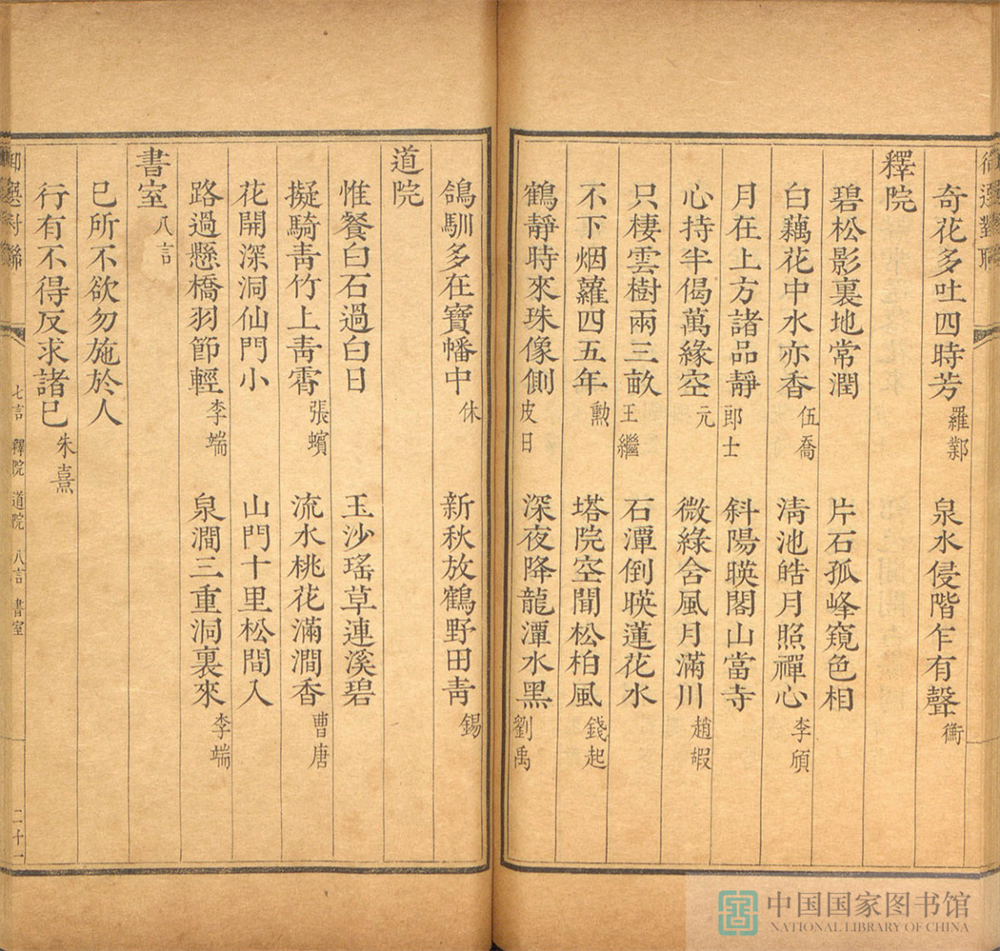 御選對聯
奇花多吐四時芳 羅鄴 泉水侵階乍有聲 衡
釋院
碧松影裏地常潤 片石孤峰窺色相
白藕花中水亦香 伍喬 清池皓月照禪心 李頎
月在上方諸品靜 郎士 斜陽暎閣山當寺
心持半偈萬緣空 元 微綠含風月滿川 趙嘏
只棲雲樹兩三畝 王繼 石潭倒暎蓮花水
不下烟蘿四五年 勲 塔院空聞松柏風 錢起
鶴靜時來珠像側 皮日 深夜降龍潭水黑 劉禹
鴿馴多在寶幡中 休 新秋放鶴野田青 錫
道院
惟餐白石過白日 玉沙瑤草連溪碧
擬騎青竹上青霄 張蠙 流水桃花滿澗香 曹唐
花開深洞仙門小 山門十里松間入
路過懸橋羽節輕 李端 泉澗三重洞裏來 李端
書室 八言
己所不欲勿施於人
行有不得反求諸己 朱熹
御選對聯 七言 釋院 道院 八言 書室 二十一
中国国家图书馆
NATIONAL LIBRARY OF CHINA